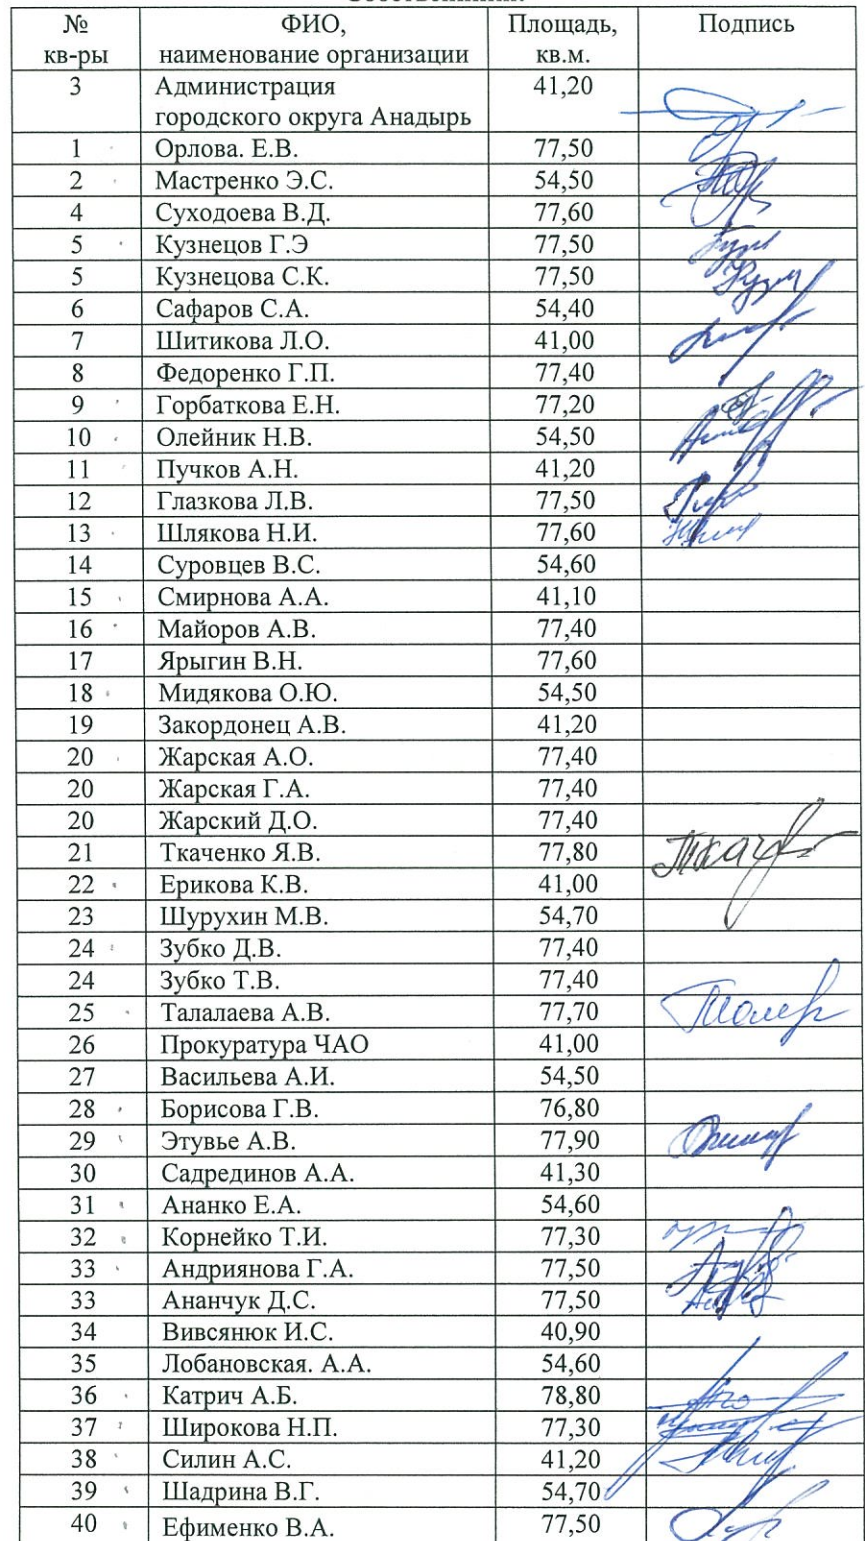 № ФИО, Площадь, Подпись
кв-ры наименование организации кв.м.
3 Администрация 41,20
городского округа Анадырь
1 Орлова. Е.В. 77,50
2 Мастренко Э.С. 54,50
4 Суходоева В.Д. 77,60
5 Кузнецов Г.Э 77,50
5 Кузнецова С.К. 77,50
6 Сафаров С.А. 54,40
7 Шитикова Л.О. 41,00
8 Федоренко Г.П. 77,40
9 Горбаткова Е.Н. 77,20
10 Олейник Н.В. 54,50
11 Пучков А.Н. 41,20
12 Глазкова Л.В. 77,50
13 Шлякова Н.И. 77,60
14 Суровцев В.С. 54,60
15 Смирнова А.А. 41,10
16 Майоров А.В. 77,40
17 Ярыгин В.Н. 77,60
18 Мидякова О.Ю. 54,50
19 Закордонец А.В. 41,20
20 Жарская А.О. 77,40
20 Жарская Г.А. 77,40
20 Жарский Д.О. 77,40
21 Ткаченко Я.В. 77,80
22 Ерикова К.В. 41,00
23 Шурухин М.В. 54,70
24 Зубко Д.В. 77,40
24 Зубко Т.В. 77,40
25 Талалаева А.В. 77,70
26 Прокуратура ЧАО 41,00
27 Васильева А.И. 54,50
28 Борисова Г.В. 76,80
29 Этувье А.В. 77,90
30 Садрединов А.А. 41,30
31 Ананко Е.А. 54,60
32 Корнейко Т.И. 77,30
33 Андриянова Г.А. 77,50
33 Ананчук Д.С. 77,50
34 Вивсянюк И.С. 40,90
35 Лобановская. А.А. 54,60
36 Катрич А.Б. 78,80
37 Широкова Н.П. 77,30
38 Силин А.С. 41,20
39 Шадрина В.Г. 54,70
40 Ефименко В.А. 77,50